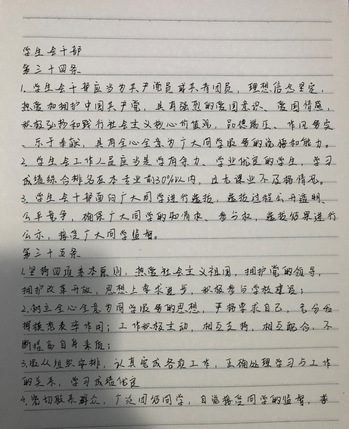 学生会干部
第三十四条
1.学生会干部应当为共产党员或共青团员，理想信念坚定，
热爱和拥护中国共产党，具有强烈的爱国意识、爱国情感，
积极弘扬和践行社会主义核心价值观，品德端正、作风务实、
乐于奉献，具有全心全意为广大同学服务的觉悟和能力。
2.学生会工作人员应当是学有余力、学业优良的学生，学习
成绩综合排名在本专业前30%以内，且无课业不及格情况。
3.学生会干部面向广大同学进行选拔，选拔过程公开透明、
公平竞争，确保广大同学的知情权、参与权，选拔结果进行
公示，接受广大同学监督。
第三十五条
1.坚持四项基本原则，热爱社会主义祖国，拥护党的领导，
拥护改革开放，思想上要求进步，积极参与学校建设；
2.树立全心全意为同学服务的思想，严格要求自己，充分发
挥模范表率作用；工作积极主动，相互支持，相互配合，不
断提高自身素质；
3.服从组织安排，认真完成各项工作，正确处理学习与工作
的关系，学习成绩优良
4.密切联系群众，广泛团结同学，自觉接受同学的监督，